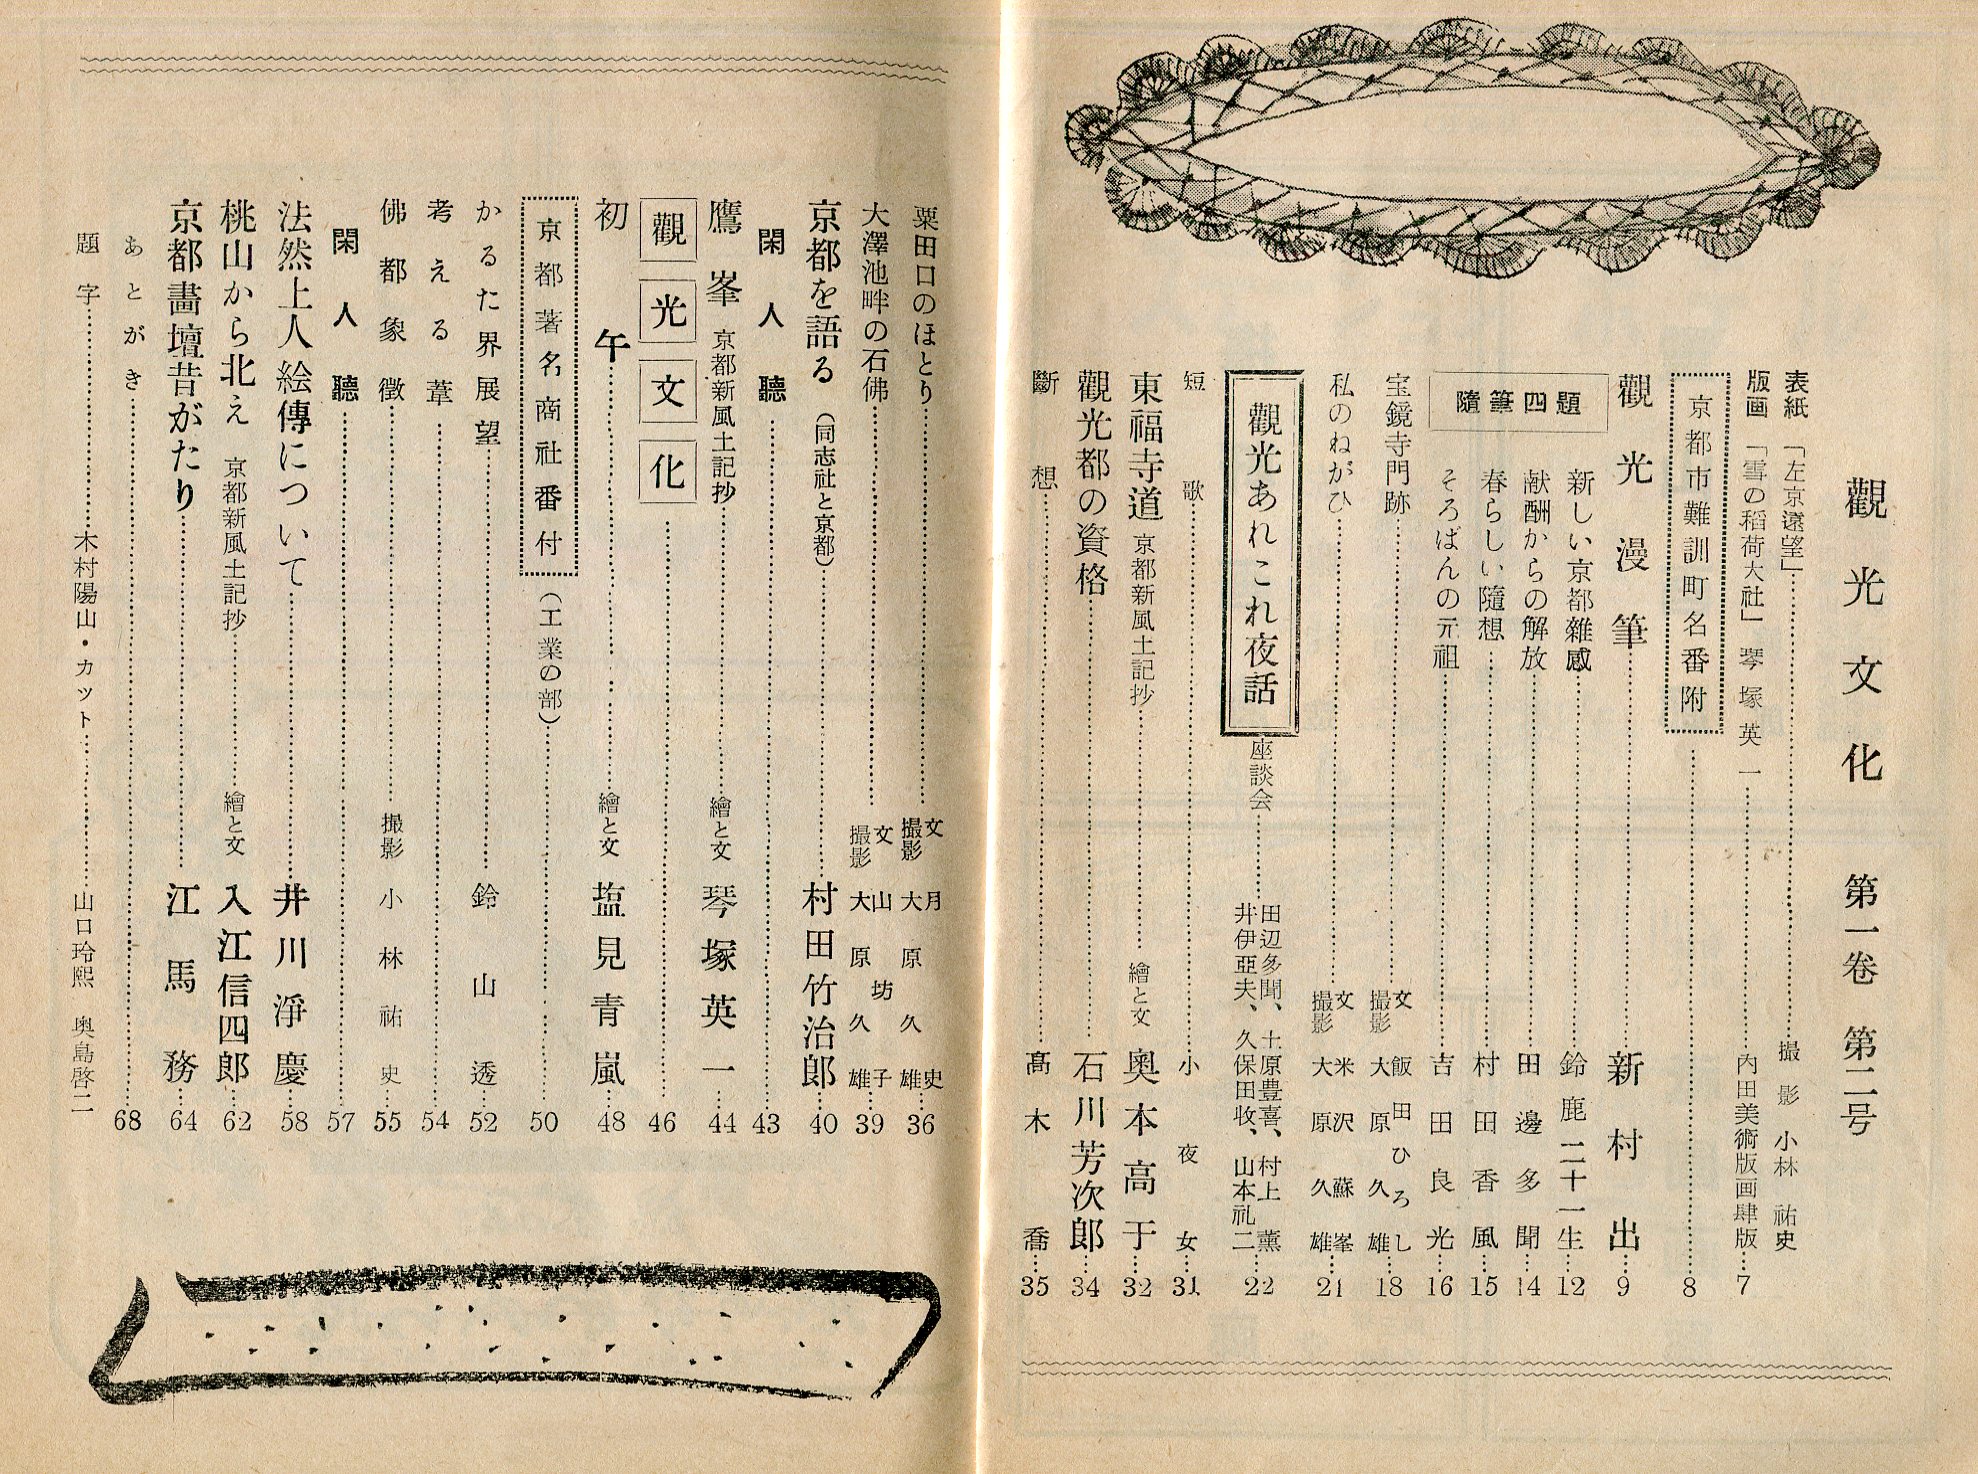 觀光文化 第一卷 第二号
表紙 「左京遠望」 撮影 小林祐史
版画 「雪の稻荷大社」 琴塚英一 内田美術版画肆版 7
京都市難訓町名番附 8
觀光漫筆 新村出 9
隨筆四題
新しい京都雜感 鈴鹿二十一生 12
献酬からの解放 田邊多聞 14
春らしい隨想 村田香風 15
そろばんの元祖 吉田良光 16
宝鏡寺門跡 文 飯田ひろし 撮影 大原久雄 18
私のねがひ 文 米沢蘇峯 撮影 大原久雄 21
觀光あれこれ夜話 座談会 田辺多聞、土原豊喜、村上薫 井伊亞夫、久保田收、山本礼二 22
短歌 小夜女 31
東福寺道 京都新風土記抄 繪と文 奥本高于 32
觀光都の資格 石川芳次郎 34
斷想 髙木喬 35
粟田口のほとり 文 月史 撮影 大原久雄 36
大澤池畔の石佛 文 山坊子 撮影 大原久雄 39
京都を語る (同志社と京都) 村田竹治郎 40
閑人聽 43
鷹峯 京都新風土記抄 繪と文 琴塚英一 44
觀光文化 46
初午 繪と文 塩見青嵐 48
京都著名商社番付 (工業の部) 50
かるた界展望 鈴山透 52
考える葦 54
佛都象徵 撮影 小林祐史 55
閑人聽 57
法然上人絵傳について 井川淨慶 58
桃山から北え 京都新風土記抄 繪と文 入江信四郎 62
京都畵壇昔がたり 江馬務 64
あとがき 68
題字 木村陽山・カット 山口玲熙 奥島啓二